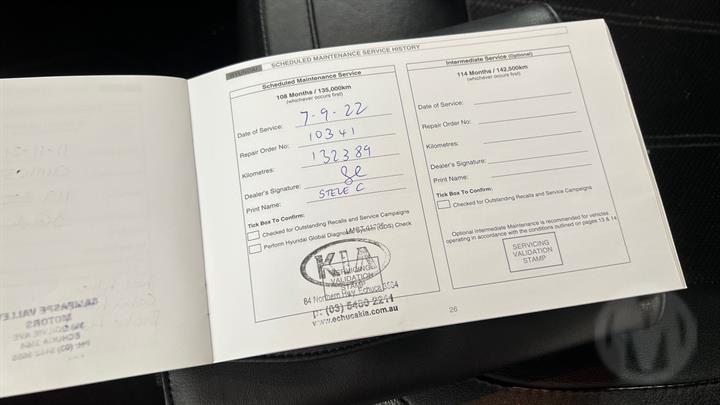 HYUNDAI SCHEDULED MAINTENANCE SERVICE HISTORY
Scheduled Maintenance Service
108 Months / 135,000km
(whichever occurs first)
Date of Service: 7-9-22
Repair Order No: 10341
Kilometres: 132389
Dealer's Signature:
Print Name: STEVE C
Tick Box To Confirm:
Checked for Outstanding Recalls and Service Campaigns
Perform Hyundai Global Diagnostic System (GDS) Check
KIA
SERVICING
VALIDATION
STAMP
84 Northern Hwy, Echuca 3564
p: (03) 5480 2241
www.echucakia.com.au
Intermediate Service (Optional)
114 Months / 142,500km
(whichever occurs first)
Date of Service:
Repair Order No:
Kilometres:
Dealer's Signature:
Print Name:
Tick Box To Confirm:
Checked for Outstanding Recalls and Service Campaigns
Optional Intermediate Maintenance is recommended for vehicles
operating in accordance with the conditions outlined on pages 13 & 14
SERVICING
VALIDATION
STAMP
26
CAMPASPE VALLEY
MOTORS
OGILVIE AVE
ECHUCA 3564